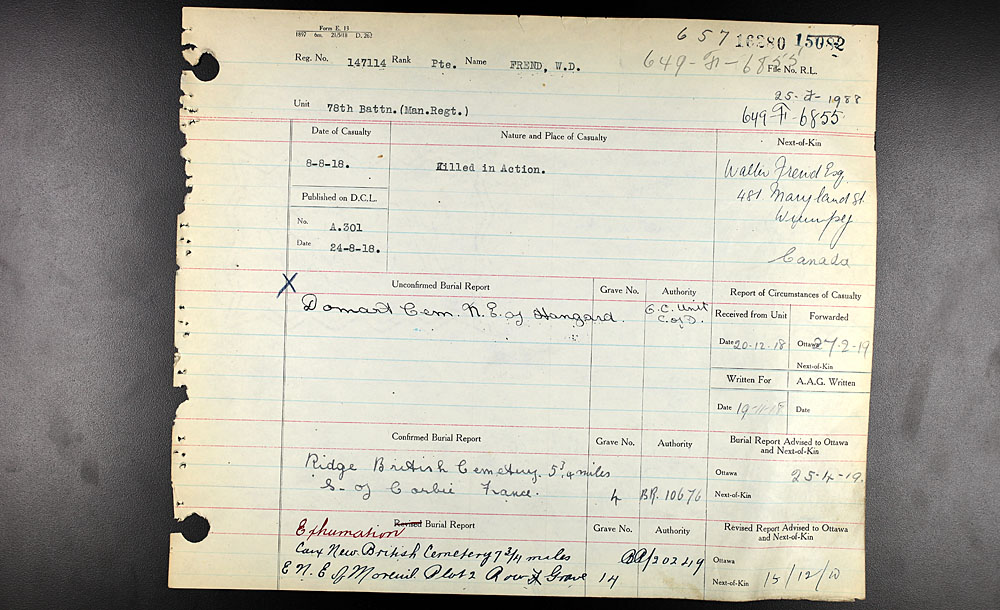 Form E. 13
1897 6m. 21/5/18 D. 262
657 16280 15082
Reg. No. 147114 Rank Pte. Name FREND, W.D.
649-F-6855
File No. R.L.
1988
Unit 78th Battn.(Man.Regt.)
649-F-6855
Date of Casualty
Nature and Place of Casualty
Next-of-Kin
8-8-18.
Killed in Action.
Walter Frend Esq.
481 Maryland St.
Winnipeg
Canada
Published on D.C.L.
No. A.301
Date 24-8-18.
X
Unconfirmed Burial Report
Grave No.
Authority
Report of Circumstances of Casualty
Domart Cem. N.E. of Hangard.
G.C. Unit
C. of D.
Received from Unit
Forwarded
Date 20-12-18
Ottawa 27-2-19
Next-of-Kin
Written For
A.A.G. Written
Date 19-11-18
Date
Confirmed Burial Report
Grave No.
Authority
Burial Report Advised to Ottawa
and Next-of-Kin
Ridge British Cemetery. 5¾ miles
S- of Corbie France.
4
BR. 10676
Ottawa 25-4-19.
Next-of-Kin
Exhumation
Revised Burial Report
Grave No.
Authority
Revised Report Advised to Ottawa
and Next-of-Kin
Caix New British Cemetery 7 3/4 miles
E N. E of Moreuil Plot 2 Row Grave 14
202249
Ottawa
Next-of-Kin 15/12/